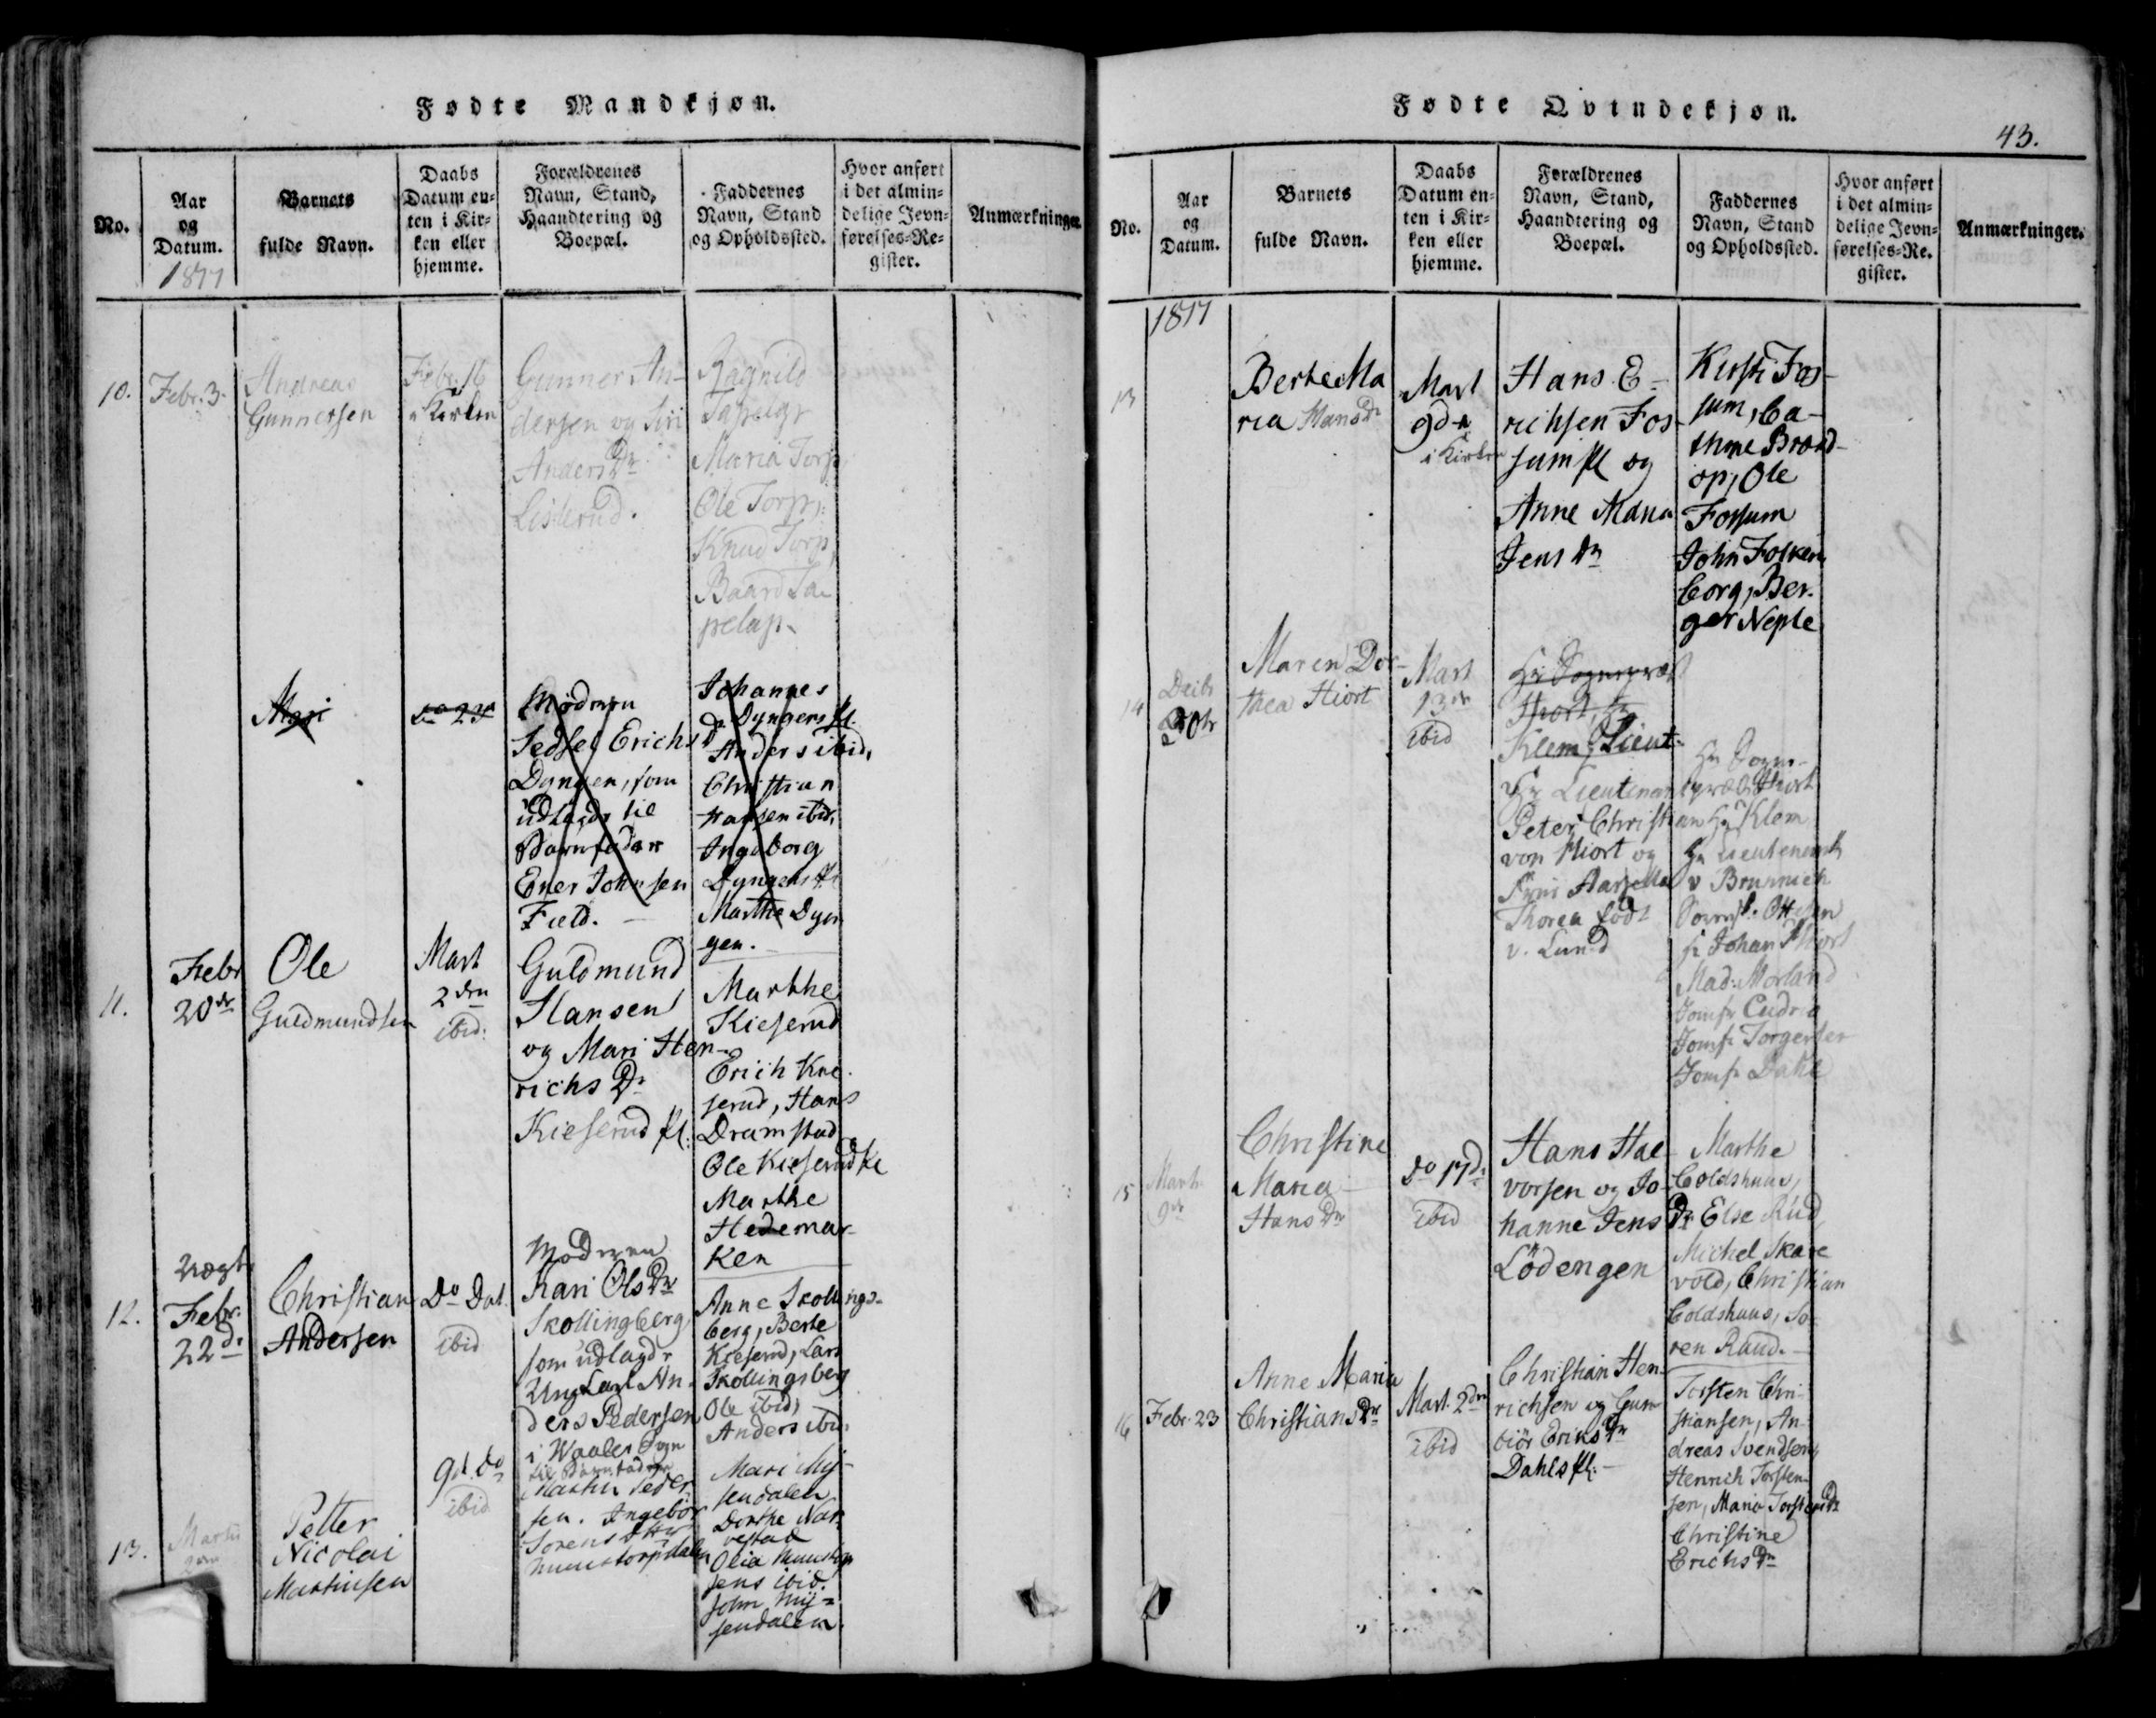 Fødte Mandkjøn.
No.
Aar
og
Datum.
1817
Barnets
fulde Navn.
Daabs
Datum en-
ten i Kir-
ken eller
hjemme.
Forældrenes
Navn, Stand,
Haandtering og
Boepæl.
Faddernes
Navn, Stand
og Opholdssted.
Hvor anført
i det almin-
delige Jevn-
førelses-Re-
gister.
Anmærkninger.
10.
Febr. 3.
Andreas
Gunnersen
Febr. 16
i Kirken
Gunner An-
dersen og Siri
Anders Dr
Listerud.
Ragnild
Maria Torp,
Ole Torp,
Knud Torp,
Baard
Mari
do 23
Moderen
Sedsel Erichs Dr
Dyngen, som
udlagde til
Barnefader
Ener Johnsen
Field.
Johannes
Dyngen pl.
Anders ibid,
Christian
Hansen ibid,
Ingeborg
Dyngen pl.
Marthe Dyn
gen.
11.
Febr
20de
Ole
Guldmundsen
Mart
2den
ibid:
Guldmund
Hansen
og Mari Hen-
richs Dr
Kieserud pl.
Marthe
Kieserud
Erich Kie-
serud, Hans
Dramstad
Ole Kieserud pl
Marthe
Hedemar-
ken
12.
Uægt.
Febr.
22de
Christian
Andersen
Do Dat.
ibid
Moderen
Kari Ols Dr
Skollingberg
som udlagde
Ung Carl An-
ders Pedersen
i Waaler Sogn
til Barnefader
Anne Skollings-
berg, Berte
Kieserud, Lars
Skollingsberg
Ole ibid,
Anders ibid.
13.
Martii
Petter
Nicolai
Martinsen
9d. do
ibid
Martin Peder-
sen. Ingebor
Sorens Dtr
Munstorpdalen
Mari My-
sendalen
Dorthe Nar-
vestad
Olia Munstop
Jens ibid.
John My-
sendalen.
Fødte Qvindekjøn.
43.
No.
Aar
og
Datum.
1817
Barnets
fulde Navn.
Daabs
Datum en-
ten i Kir-
ken eller
hjemme.
Forældrenes
Navn, Stand,
Haandtering og
Boepæl.
Faddernes
Navn, Stand
og Opholdssted.
Hvor anført
i det almin-
delige Jevn-
førelses-Re-
gister.
Anmærkninger.
13
Berte Ma
ria Hans Dr
Mart
9de
i Kirken
Hans E-
richsen Fos-
sum pl og
Anne Maria
Jens Dr
Kirsti Fos-
sum, Ca-
thrine Brand-
op, Ole
Fossum
John Folken
borg, Ber-
ger Neple
14
Maren Dor-
thea Hiort
Mart
13de
ibid
Hr Sognepræst
Hiort, Hr
Klem, Lieut.
Hr Lieutenant
Peter Christian
von Hiort og
Thorea født
v. Lund
Hr Sogne-
præst Hiort
Hr Klem
Hr Lieutenant
v Brunnich
Hr Johan Hiort
Mad: Morland
Jomfr
Jomfr Torgersen
Jomfr Dahl
15
Mart
9de
Christine
Maria
Hans Dr
Do 17de
ibid
Hans Hal-
vorsen og Jo-
hanne Jens Dr
Lödengen
Marthe
Coldshuus,
Else Rud,
Michel Skare
vold, Christian
Coldshuus, So-
ren Rand.
16
Febr. 23
Anne Maria
Christians Dr
Mart. 2den
ibid
Christian Hen-
richsen og Gun-
biör Eriks Dr
Dahls pl.
Torsten Chri-
stiansen, An-
dreas Svendsen,
Henrich Torsten-
sen, Maria Torstens Dr
Christine
Erichs Dr